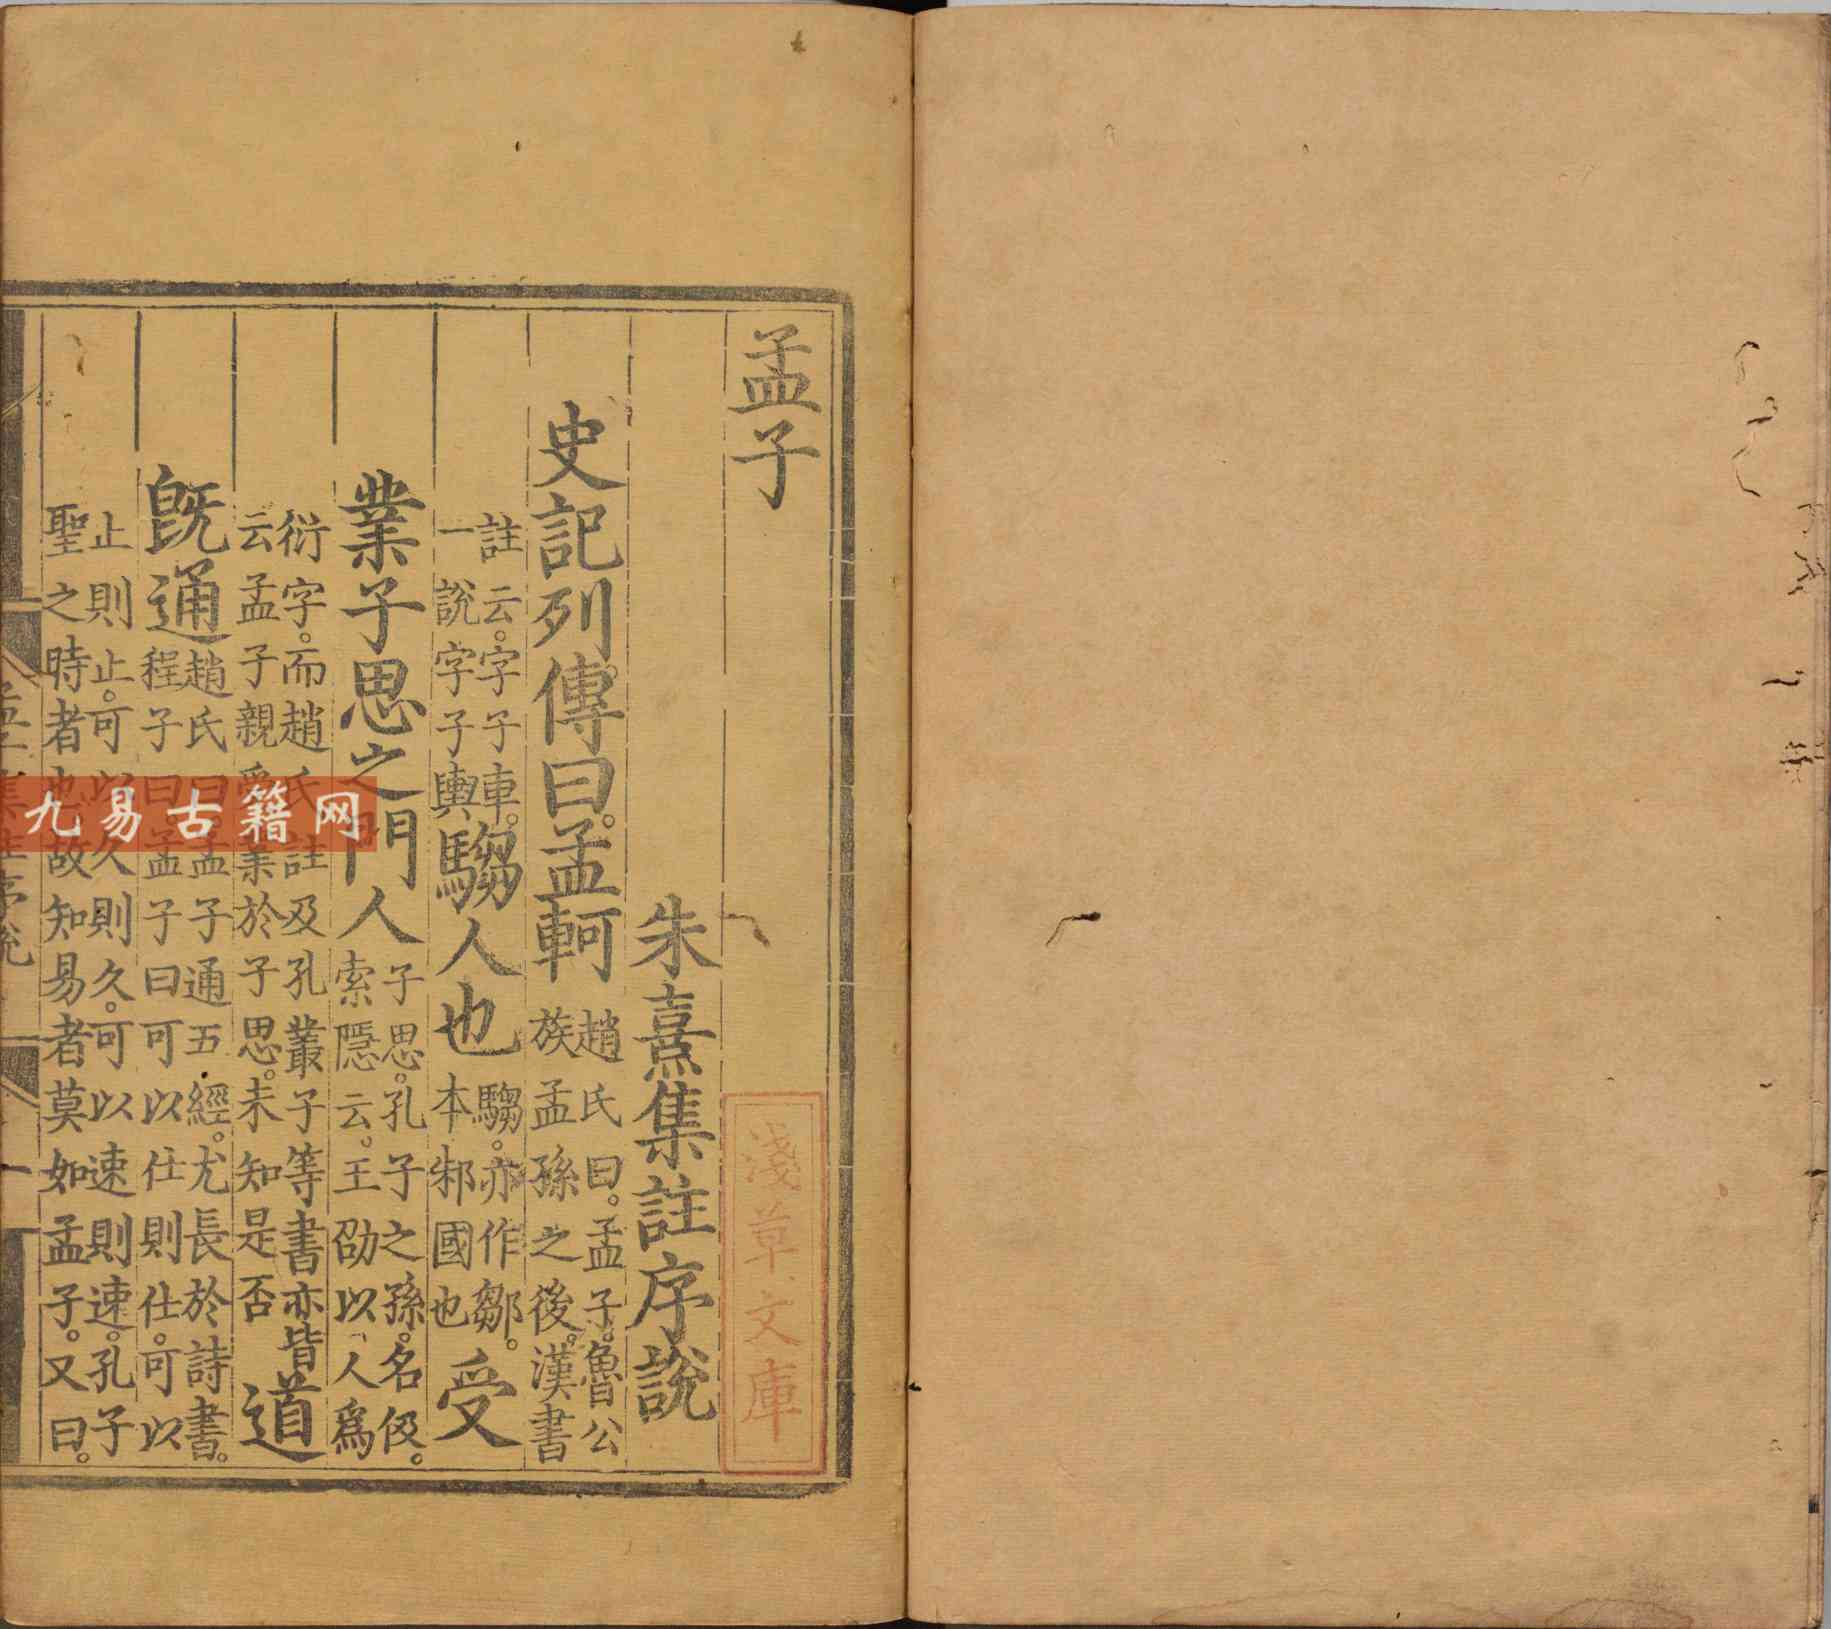 孟子
朱熹集註序說
史記列傳曰。孟軻趙氏曰。孟子。魯公
族孟孫之後。漢書
註云。字子車。
一說字子輿騶人也騶。亦作鄒。
本邾國也受
業子思之門人子思。孔子之孫。名伋。
索隱云。王劭以人為
衍字。而趙氏註及孔叢子等書亦皆
云孟子親受業於子思。未知是否道
既通趙氏曰。孟子通五經。尤長於詩書。
程子曰孟子曰可以仕則仕。可以
止則止。可以久則久。可以速則速。孔子
聖之時者也故知易者莫如孟子。又曰。
淺草文庫
九易古籍网